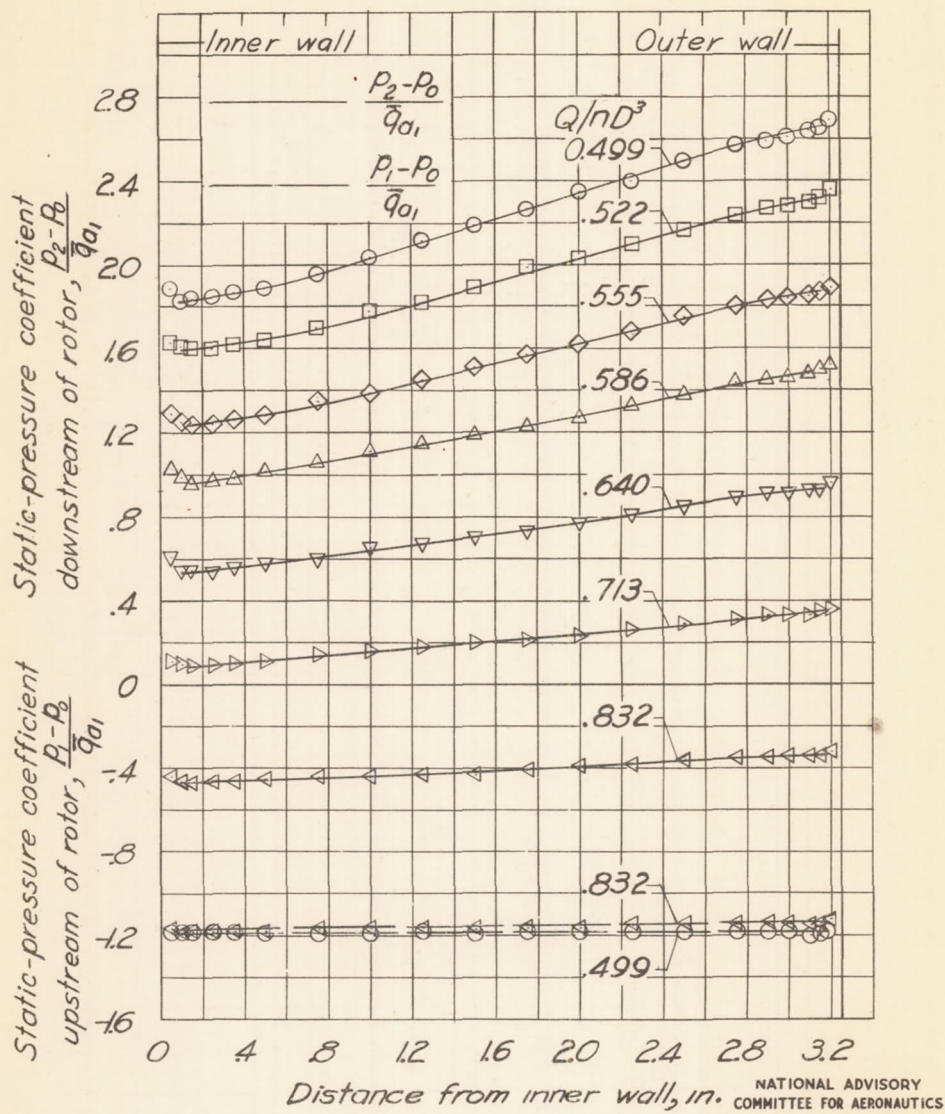 Inner wall
Outer wall
p₂-p₀
q̄a₁
p₁-p₀
q̄a₁
Q/nD³
0.499
.522
.555
.586
.640
.713
.832
.832
.499
2.8
2.4
2.0
1.6
1.2
.8
.4
0
-.4
-.8
-1.2
-1.6
Static-pressure coefficient
downstream of rotor, p₂-p₀
q̄a₁
Static-pressure coefficient
upstream of rotor, p₁-p₀
q̄a₁
0 .4 .8 1.2 1.6 2.0 2.4 2.8 3.2
Distance from inner wall, in.
NATIONAL ADVISORY
COMMITTEE FOR AERONAUTICS